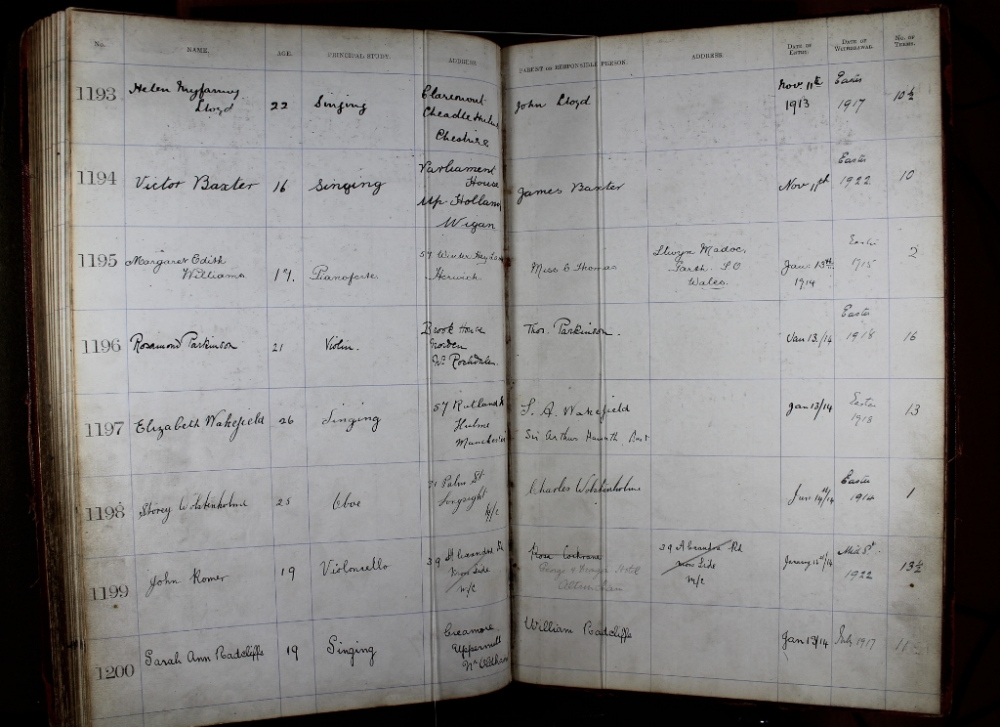 No. NAME. AGE. PRINCIPAL STUDY. ADDRESS PARENT OR RESPONSIBLE PERSON. ADDRESS. DATE OF ENTRY. DATE OF WITHDRAWAL. NO. OF TERMS.
1193 Helen Myfanwy Lloyd 22 Singing Claremont Cheadle Hulme Cheshire John Lloyd Nov. 11th 1913 Easter 1917 10½
1194 Victor Baxter 16 Singing Parliament House Up Holland Wigan James Baxter Nov 11th Easter 1922 10
1195 Margaret Edith Williams 17. Pianoforte 57 Winter Hey Lane Horwich Miss E Thomas Llwyn Madoc, Garth. S.O Wales. Jany 13th 1914 Easter 1915 2
1196 Rosamond Parkinson 21 Violin. Brook House Nr Rochdale. Thos. Parkinson. Jan 13/14 Easter 1918 16
1197 Elizabeth Wakefield 26 Singing 57 Rutland St Hulme Manchester S. A. Wakefield Sir Arthur Jan 13/14 Easter 1918 13
1198 Storey Wolstenholme 25 Oboe 21 Palm St Longsight M/c Charles Wolstenholme Jan 14th/14 Easter 1914 1
1199 John Romer 19 Violoncello 39 Alexandra Rd Moss Side M/c Rose Cochrane Altrincham 39 Alexandra Rd Moss Side M/c January 15th/14 Mids. 1922 13½
1200 Sarah Ann Radcliffe 19 Singing Uppermill Nr Oldham William Radcliffe Jan 13/14 July 1917 11